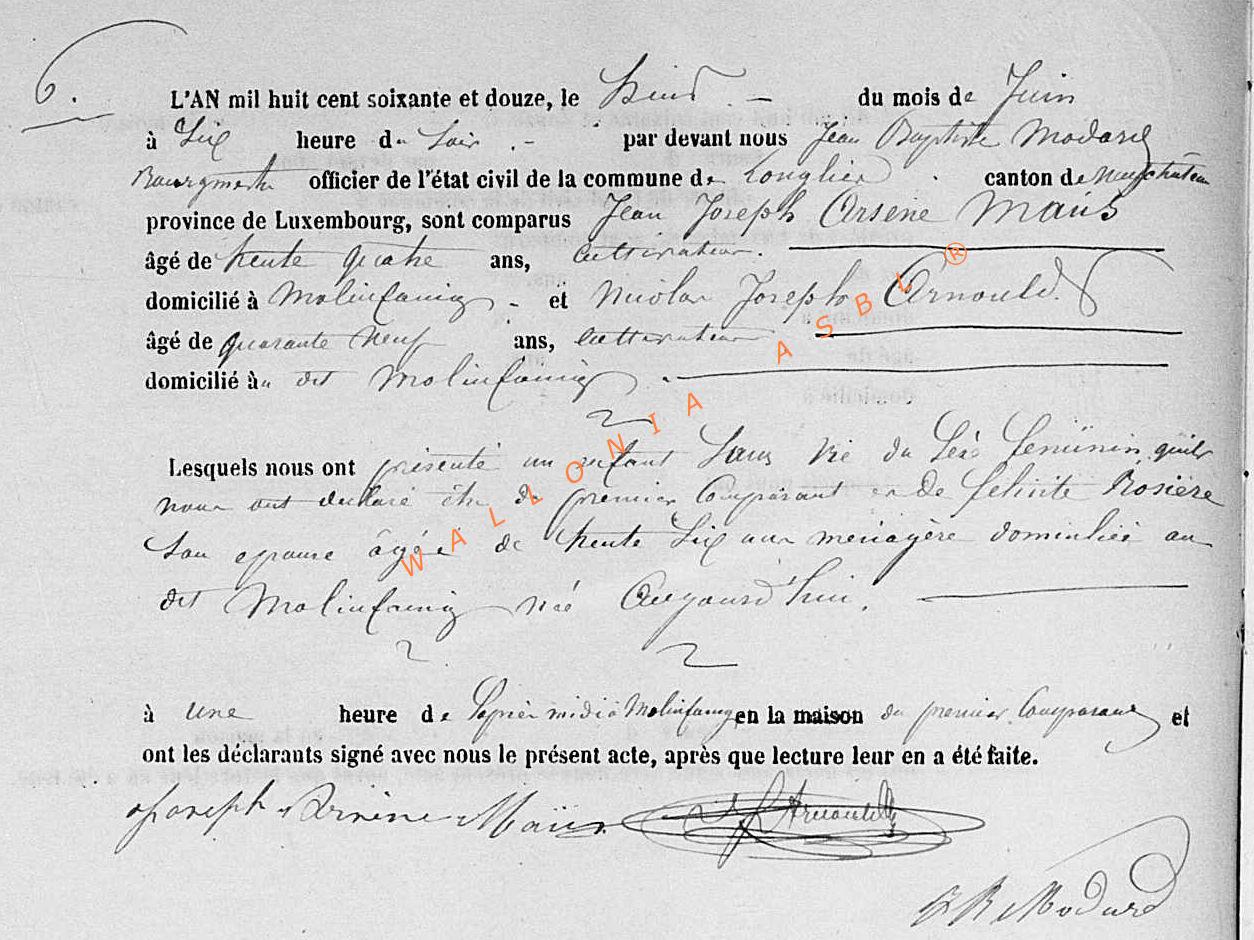 6.
L'AN mil huit cent soixante et douze, le huit du mois de Juin
à Six heure du Soir par devant nous Jean Baptiste Modard
Bourgmestre officier de l'état civil de la commune de Longlier canton de Neufchâteau
province de Luxembourg, sont comparus Jean Joseph Arsène Maus
âgé de trente quatre ans, Cultivateur.
domicilié à Molinfaing et Nicolas Joseph Arnould.
âgé de quarante neuf ans, Cultivateur
domicilié à dit Molinfaing
Lesquels nous ont présenté un enfant Sans Vie du Sexe féminin, qu'ils
nous ont déclaré être du premier Comparant et de Félicité Rosière
Son épouse âgée de trente Six ans ménagère domiciliée au
dit Molinfaing née Aujourd'hui.
à une heure de l'après midi à Molinfaing en la maison du premier Comparant et
ont les déclarants signé avec nous le présent acte, après que lecture leur en a été faite.
Joseph Arsène Maus Arnould
JB Modard
WALLONIA ASBL ®